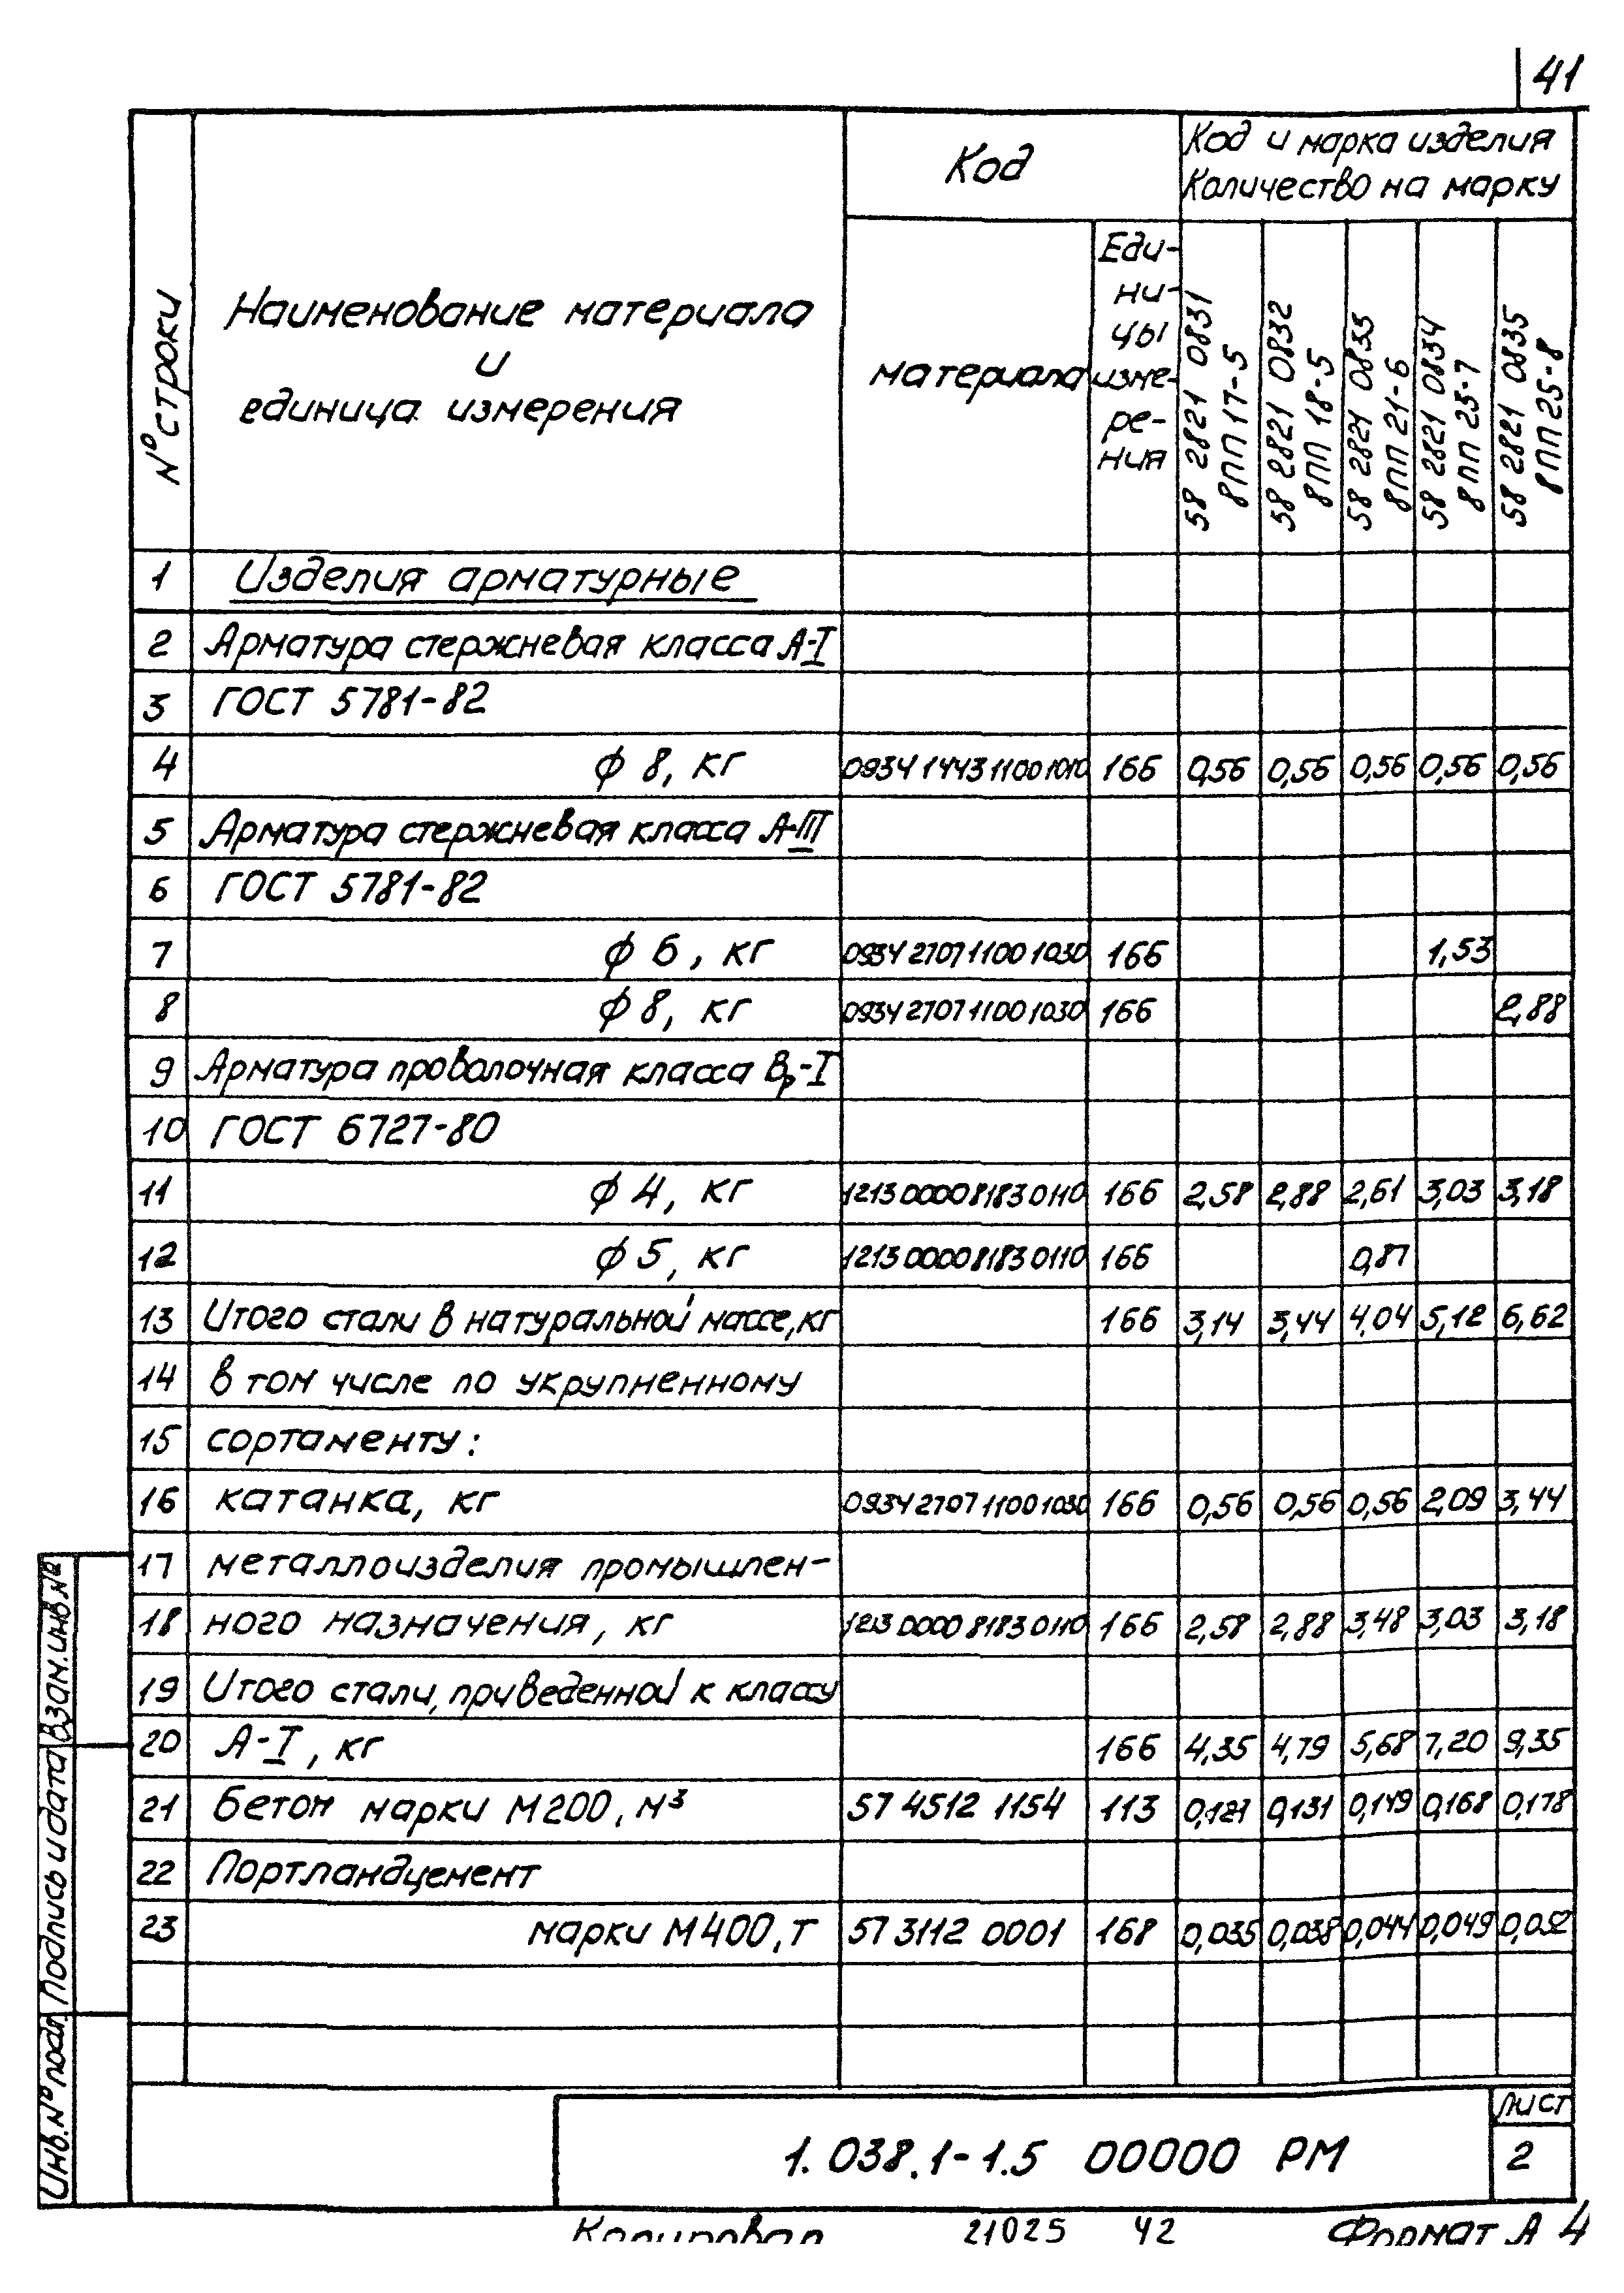 41
№ строки
Наименование материала
и
единица измерения
Код
Код и марка изделия
Количество на марку
материала
Еди-
ни-
цы
изме-
ре-
ния
58 2821 0831
8ПП 17-5
58 2821 0832
8ПП 18-5
58 2821 0833
8ПП 21-6
58 2821 0834
8ПП 25-7
58 2821 0835
8ПП 25-8
1 Изделия арматурные
2 Арматура стержневая класса А-I
3 ГОСТ 5781-82
4 ф 8, кг 0934 1443 1100 1010 166 0,56 0,56 0,56 0,56 0,56
5 Арматура стержневая класса А-III
6 ГОСТ 5781-82
7 ф 6, кг 0934 2707 1100 1030 166 1,53
8 ф 8, кг 0934 2707 1100 1030 166 2,88
9 Арматура проволочная класса Вр-I
10 ГОСТ 6727-80
11 ф 4, кг 1213 0000 8183 0110 166 2,58 2,88 2,61 3,03 3,18
12 ф 5, кг 1213 0000 8183 0110 166 0,87
13 Итого стали в натуральной массе, кг 166 3,14 3,44 4,04 5,12 6,62
14 в том числе по укрупненному
15 сортаменту:
16 катанка, кг 0934 2707 1100 1030 166 0,56 0,56 0,56 2,09 3,44
17 металлоизделия промышлен-
18 ного назначения, кг 1213 0000 8183 0110 166 2,58 2,88 3,48 3,03 3,18
19 Итого стали, приведенной к классу
20 А-I, кг 166 4,35 4,79 5,68 7,20 9,35
21 Бетон марки М200, м³ 57 4512 1154 113 0,121 0,131 0,149 0,168 0,178
22 Портландцемент
23 марки М400, т 57 3112 0001 168 0,035 0,038 0,044 0,049 0,052
Взам. инв. №
Подпись и дата
Инв. № подл
1.038.1-1.5 00000 РМ
Лист
2
Копировал 21025 42 Формат А4